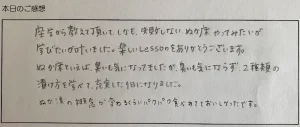 本日のご感想
座学から教えて頂いて、しかも、失敗しない ぬか床 やってみたいが
学びたいが叶いました。楽しいLessonをありがとうございます。
ぬか床といえば、臭いも気になってましたが、臭いも気にならず、2種類の
漬け方を学べて、充実した1日になりました。
ぬか漬の概念が変わるくらいパクパク食べれておいしかったです。